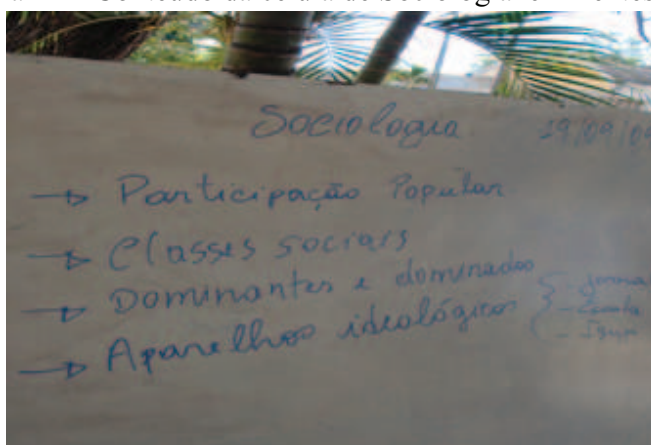 Sociologia 19/09/09
→ Participação Popular
→ Classes sociais
→ Dominantes e dominados
→ Aparelhos ideológicos { - Jorna
- Escola
- Igre